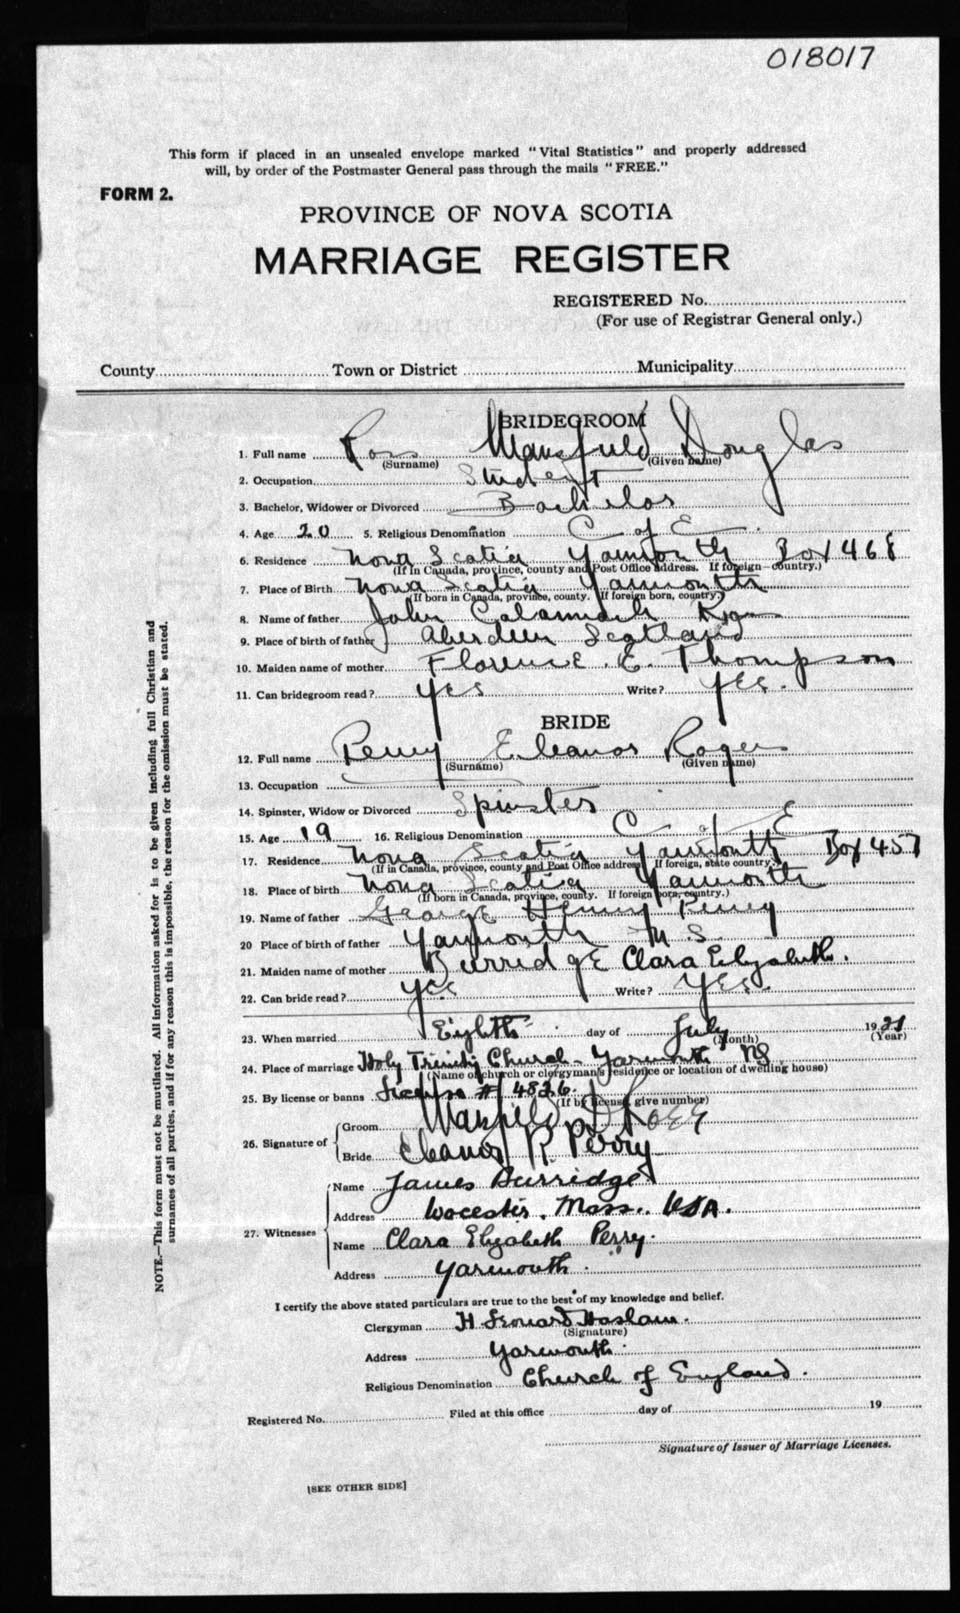 018017
This form if placed in an unsealed envelope marked "Vital Statistics" and properly addressed
will, by order of the Postmaster General pass through the mails "FREE."
FORM 2.
PROVINCE OF NOVA SCOTIA
MARRIAGE REGISTER
REGISTERED No.
(For use of Registrar General only.)
County Town or District Municipality
BRIDEGROOM
1. Full name Ross Mansfield Douglas
(Surname) (Given name)
2. Occupation Student
3. Bachelor, Widower or Divorced Bachelor
4. Age 20 5. Religious Denomination C of E
6. Residence Nova Scotia Yarmouth Box 468
(If in Canada, province, county and Post Office address. If foreign—country.)
7. Place of Birth Nova Scotia Yarmouth
(If born in Canada, province, county. If foreign born, country.)
8. Name of father John Ross
9. Place of birth of father Aberdeen Scotland
10. Maiden name of mother Florence E. Thompson
11. Can bridegroom read? yes Write? yes.
BRIDE
12. Full name Perry Eleanor Rogers
(Surname) (Given name)
13. Occupation
14. Spinster, Widow or Divorced Spinster
15. Age 19 16. Religious Denomination C of E
17. Residence Nova Scotia Yarmouth Box 457
(If in Canada, province, county and Post Office address. If foreign, state country.)
18. Place of birth Nova Scotia Yarmouth
(If born in Canada, province, county. If foreign born, country.)
19. Name of father George Henry Perry
20 Place of birth of father Yarmouth N S
21. Maiden name of mother Burridge Clara Elizabeth.
22. Can bride read? yes Write? yes.
23. When married Eighth day of July 19
(Month) (Year)
24. Place of marriage Holy Trinity Church - Yarmouth NS
(Name of church or clergyman's residence or location of dwelling house)
25. By license or banns License # 4826.
(If by license, give number)
26. Signature of Groom Mansfield D Ross
Bride Eleanor R. Perry
27. Witnesses Name James Burridge
Address Worcester, Mass. USA.
Name Clara Elizabeth Perry.
Address Yarmouth.
I certify the above stated particulars are true to the best of my knowledge and belief.
Clergyman H. Leonard Haslam.
(Signature)
Address Yarmouth.
Religious Denomination Church of England.
Registered No. Filed at this office day of 19
Signature of Issuer of Marriage Licenses.
[SEE OTHER SIDE]
NOTE.—This form must not be mutilated. All information asked for is to be given including full Christian and
surnames of all parties, and if for any reason this is impossible, the reason for the omission must be stated.